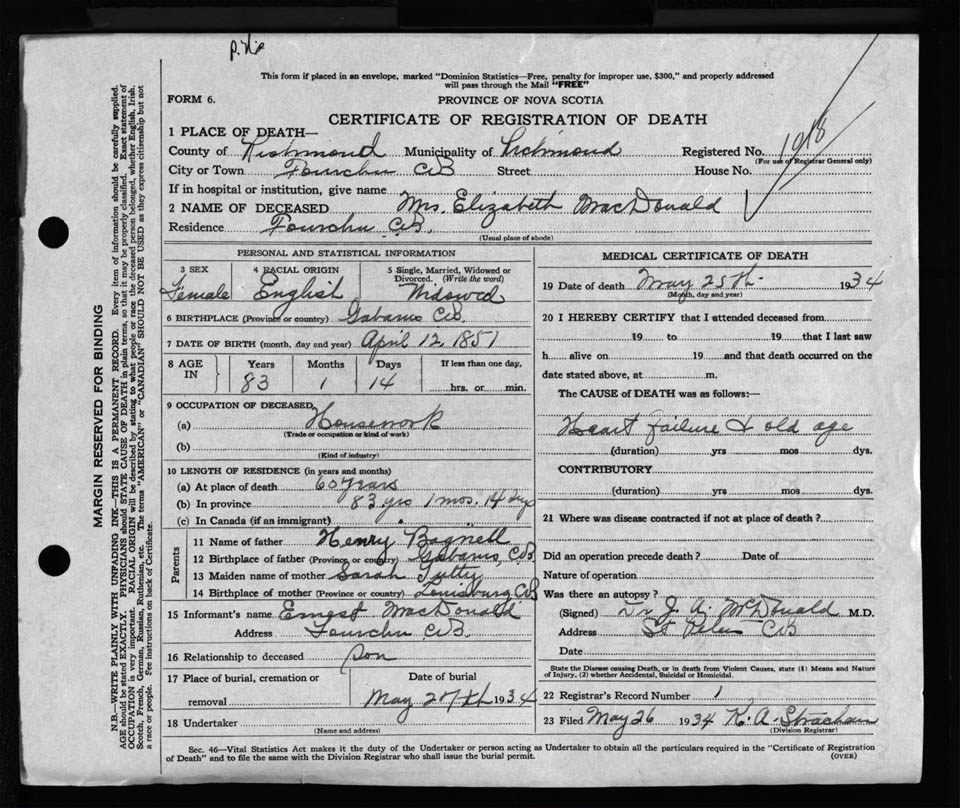 This form if placed in an envelope, marked "Dominion Statistics—Free, penalty for improper use, $300," and properly addressed
will pass through the Mail "FREE"
FORM 6.
PROVINCE OF NOVA SCOTIA
CERTIFICATE OF REGISTRATION OF DEATH
1 PLACE OF DEATH—
County of Richmond Municipality of Richmond Registered No. 1918
(For use of Registrar General only)
City or Town Fourchu CB Street House No.
If in hospital or institution, give name
2 NAME OF DECEASED Mrs. Elizabeth MacDonald
Residence Fourchu CB.
(Usual place of abode)
PERSONAL AND STATISTICAL INFORMATION
3 SEX 4 RACIAL ORIGIN 5 Single, Married, Widowed or
Divorced. (Write the word)
Female English Widowed
6 BIRTHPLACE (Province or country) Gabarus CB.
7 DATE OF BIRTH (month, day and year) April 12 1851
8 AGE IN Years Months Days If less than one day,
83 1 14 hrs. or min.
9 OCCUPATION OF DECEASED
(a) Housework
(Trade or occupation or kind of work)
(b)
(Kind of industry)
10 LENGTH OF RESIDENCE (in years and months)
(a) At place of death 60 years
(b) In province 83 yrs 1 mos. 14 dys
(c) In Canada (if an immigrant)
Parents
11 Name of father Henry Bagnell
12 Birthplace of father (Province or country) Gabarus, CB
13 Maiden name of mother Sarah Tutty
14 Birthplace of mother (Province or country) Louisburg CB
15 Informant's name Ernest MacDonald
Address Fourchu CB.
16 Relationship to deceased son
17 Place of burial, cremation or Date of burial
removal May 27th 1934
18 Undertaker
(Name and address)
MEDICAL CERTIFICATE OF DEATH
19 Date of death May 25th 1934
(Month, day and year)
20 I HEREBY CERTIFY that I attended deceased from
19 to 19 that I last saw
h alive on 19 and that death occurred on the
date stated above, at m.
The CAUSE of DEATH was as follows:—
Heart failure & old age
(duration) yrs mos dys.
CONTRIBUTORY
(duration) yrs mos dys.
21 Where was disease contracted if not at place of death?
Did an operation precede death? Date of
Nature of operation
Was there an autopsy?
(Signed) Dr J. A. McDonald M.D.
Address St Peters CB
Date
State the Disease causing Death, or in death from Violent Causes, state (1) Means and Nature
of Injury, (2) whether Accidental, Suicidal or Homicidal.
22 Registrar's Record Number 1
23 Filed May 26 1934 K. A. Strachan
(Division Registrar)
Sec. 46—Vital Statistics Act makes it the duty of the Undertaker or person acting as Undertaker to obtain all the particulars required in the "Certificate of Registration
of Death" and to file the same with the Division Registrar who shall issue the burial permit.
(OVER)
MARGIN RESERVED FOR BINDING
N.B.—WRITE PLAINLY WITH UNFADING INK—THIS IS A PERMANENT RECORD. Every item of information should be carefully supplied.
AGE should be stated EXACTLY. PHYSICIANS should STATE CAUSE OF DEATH in plain terms, so that it may be properly classified. Exact statement of
OCCUPATION is very important. RACIAL ORIGIN will be described by stating to what people or race the deceased person belonged, whether English, Irish,
Scotch, French, German, Russian, Ruthenian, etc. The terms "AMERICAN" or "CANADIAN" SHOULD NOT BE USED as they express citizenship but not
a race or people. Fee instructions on back of Certificate.